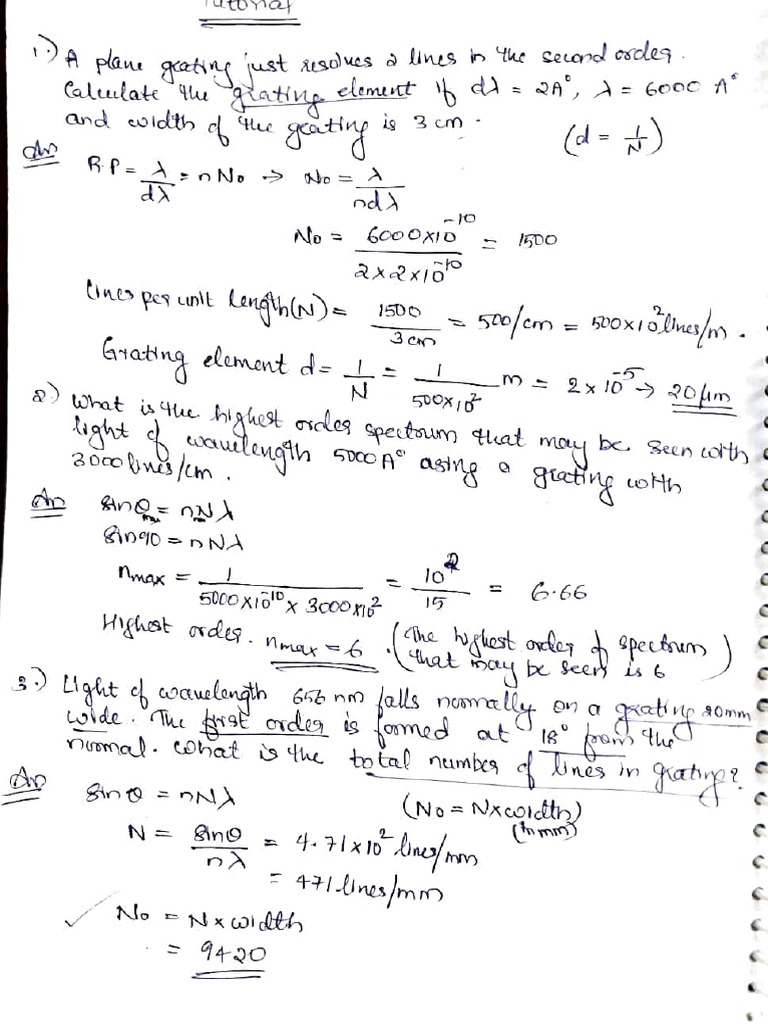 Tutorial
1.) A plane grating just resolves 2 lines in the second order.
Calculate the grating element if dλ = 2A°, λ = 6000 A°
and width of the grating is 3 cm. (d = 1/N)
Ans R.P = λ/dλ = nNo → No = λ/ndλ
No = 6000×10^-10 / 2×2×10^-10 = 1500
Lines per unit length(N) = 1500/3cm = 500/cm = 500×10^2 lines/m.
Grating element d = 1/N = 1/500×10^2 m = 2×10^-5 → 20μm
2.) What is the highest order spectrum that may be seen with
light of wavelength 5000A° using a grating with
3000 lines/cm.
Ans sinθmax = nNλ
sin90 = nNλ
nmax = 1/5000×10^-10 × 3000×10^2 = 10^2/15 = 6.66
Highest order. nmax = 6. (The highest order of spectrum
that may be seen is 6)
3.) Light of wavelength 656 nm falls normally on a grating 20mm
wide. The first order is formed at 18° from the
normal. What is the total number of lines in grating?
Ans sinθ = nNλ (No = N×width)
(in mm)
N = sinθ/nλ = 4.71×10^2 lines/mm
= 471 lines/mm
✓ No = N×width
= 9420